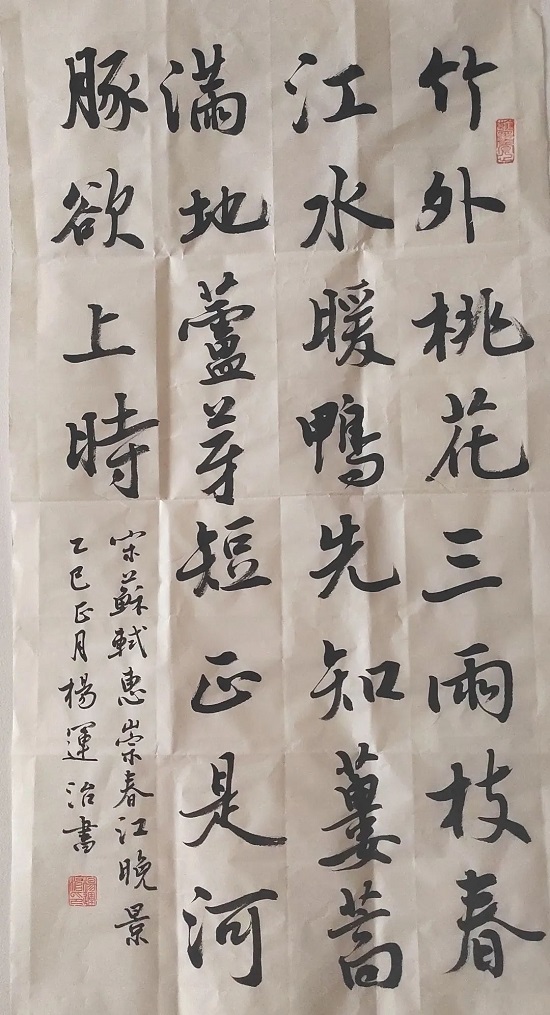 竹外桃花三兩枝春
江水暖鴨先知蔞蒿
滿地蘆芽短正是河
豚欲上時
宋蘇軾惠崇春江晚景
乙巳正月楊運治書